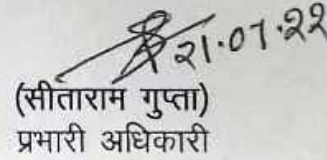 21.07.22
(सीताराम गुप्ता)
प्रभारी अधिकारी